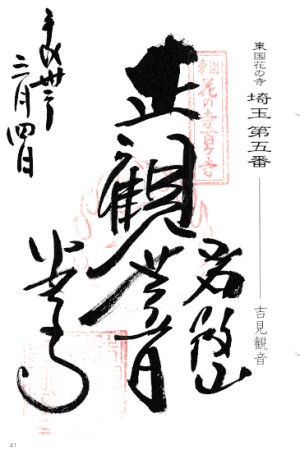 東国花の寺 埼玉 第五番 吉見観音
東国
花の寺百ヶ寺
岩殿山
正観世音
安楽寺
平成卅年
二月四日
41